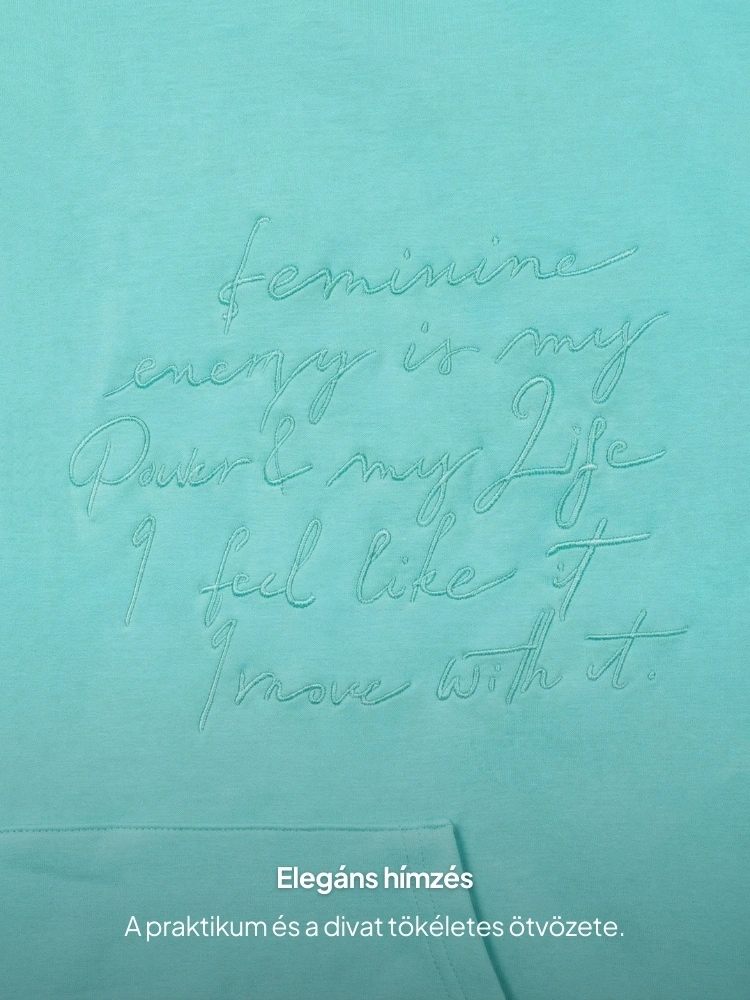 feminine
energy is my
Power & my Life
I feel like it
I move with it.
Elegáns hímzés
A praktikum és a divat tökéletes ötvözete.